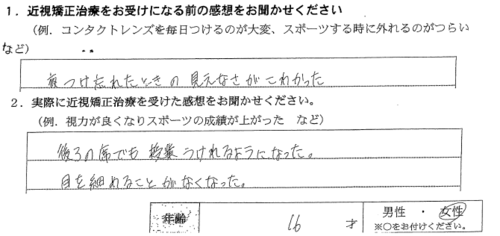 1．近視矯正治療をお受けになる前の感想をお聞かせください
（例．コンタクトレンズを毎日つけるのが大変、スポーツする時に外れるのがつらい
など）
つけ忘れたときの見えなさがこわかった
2．実際に近視矯正治療を受けた感想をお聞かせください。
（例．視力が良くなりスポーツの成績が上がった　など）
後ろの席でも授業うけれるようになった。
目を細めることがなくなった。
年齢　16　才　男性　・　女性
※○をお付けください。